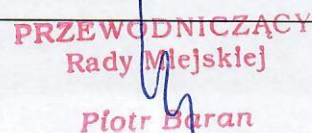 PRZEWODNICZĄCY
Rady Miejskiej
Piotr Baran